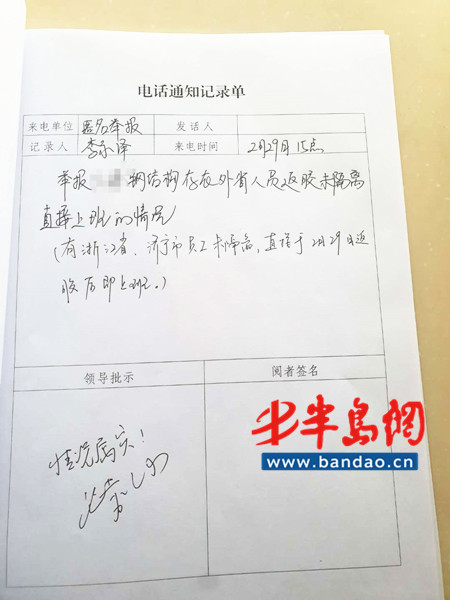 电话通知记录单
来电单位 匿名举报 发话人
记录人 李永泽 来电时间 2月29日 15点
举报 钢结构存在外省人员返胶未隔离
直接上班的情况
(有浙江省、济宁市员工未隔离,直接于2月29日返
胶后即上班。)
领导批示 阅者签名
情况属实!
半岛網
www.bandao.cn